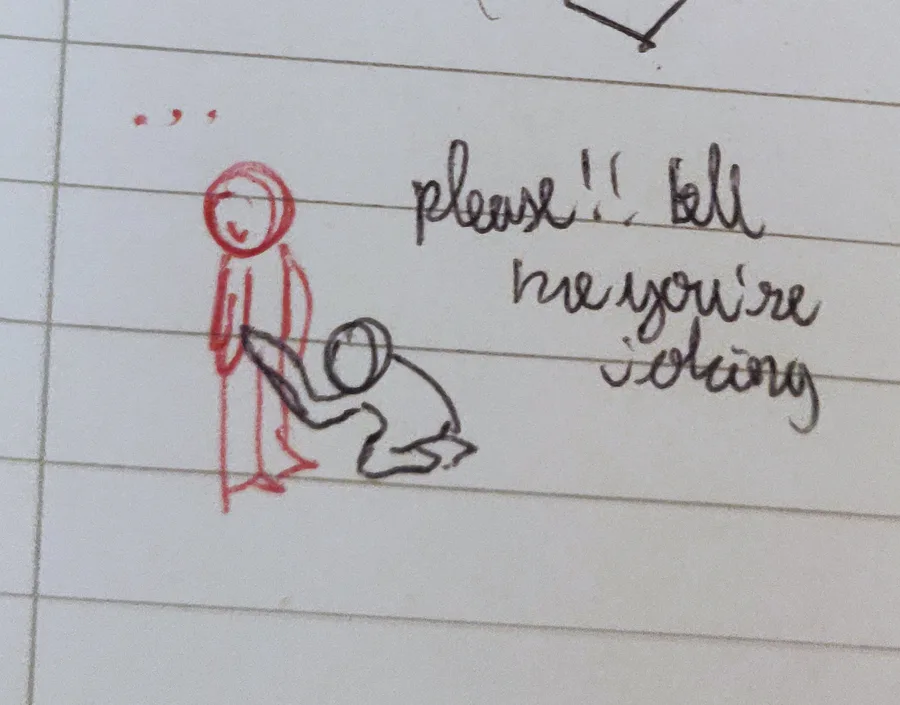 ...
please!! tell
me you're
joking